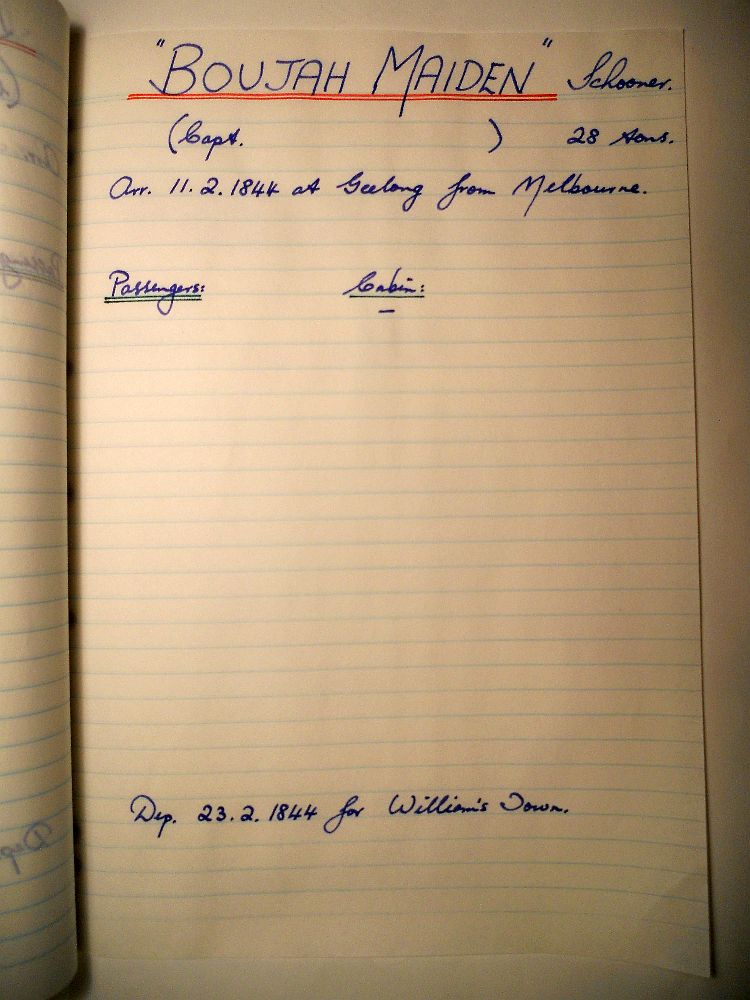 "BOUJAH MAIDEN" Schooner.
(Capt. ) 28 tons.
Arr. 11.2.1844 at Geelong from Melbourne.
Passengers: Cabin:
–
Dep. 23.2.1844 for William's Town.